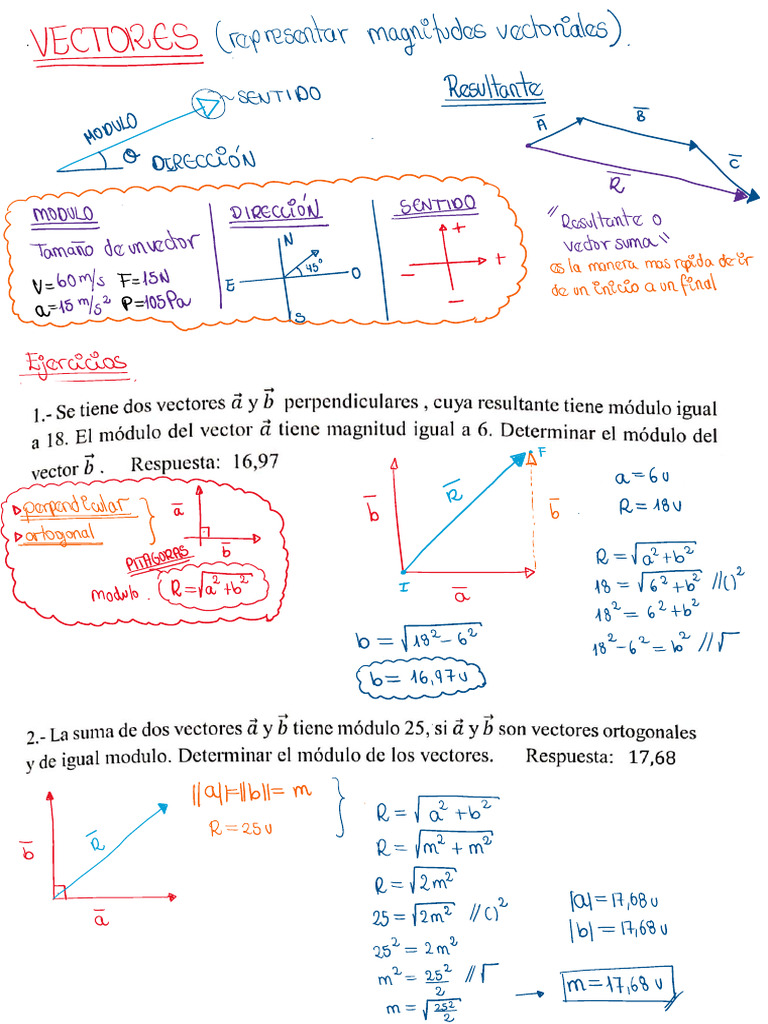 VECTORES (representar magnitudes vectoriales).
SENTIDO
MODULO
θ DIRECCIÓN
Resultante
A
B
C
R
"Resultante o
vector suma"
es la manera mas rapida de ir
de un inicio a un final
MODULO
Tamaño de un vector
V=60 m/s F=15N
a=15 m/s² P=105Pa
DIRECCIÓN
N
45°
E
O
S
SENTIDO
+
- +
-
Ejercicios
1.- Se tiene dos vectores a⃗ y b⃗ perpendiculares , cuya resultante tiene módulo igual
a 18. El módulo del vector a⃗ tiene magnitud igual a 6. Determinar el módulo del
vector b⃗ . Respuesta: 16,97
perpendicular
ortogonal
a
b
PITAGORAS
modulo. R=√a²+b²
F
b
R
b
I
a
a=6u
R=18u
R=√a²+b²
18=√6²+b² //()²
18²=6²+b²
18²-6²=b² //√
b=√18²-6²
b=16,97u
2.- La suma de dos vectores a⃗ y b⃗ tiene módulo 25, si a⃗ y b⃗ son vectores ortogonales
y de igual modulo. Determinar el módulo de los vectores. Respuesta: 17,68
b
R
a
||a||=||b||=m
R=25u
R=√a²+b²
R=√m²+m²
R=√2m²
25=√2m² //()²
25²=2m²
m²=25²/2 //√
m=√25²/2 →
|a|=17,68u
|b|=17,68u
m=17,68u